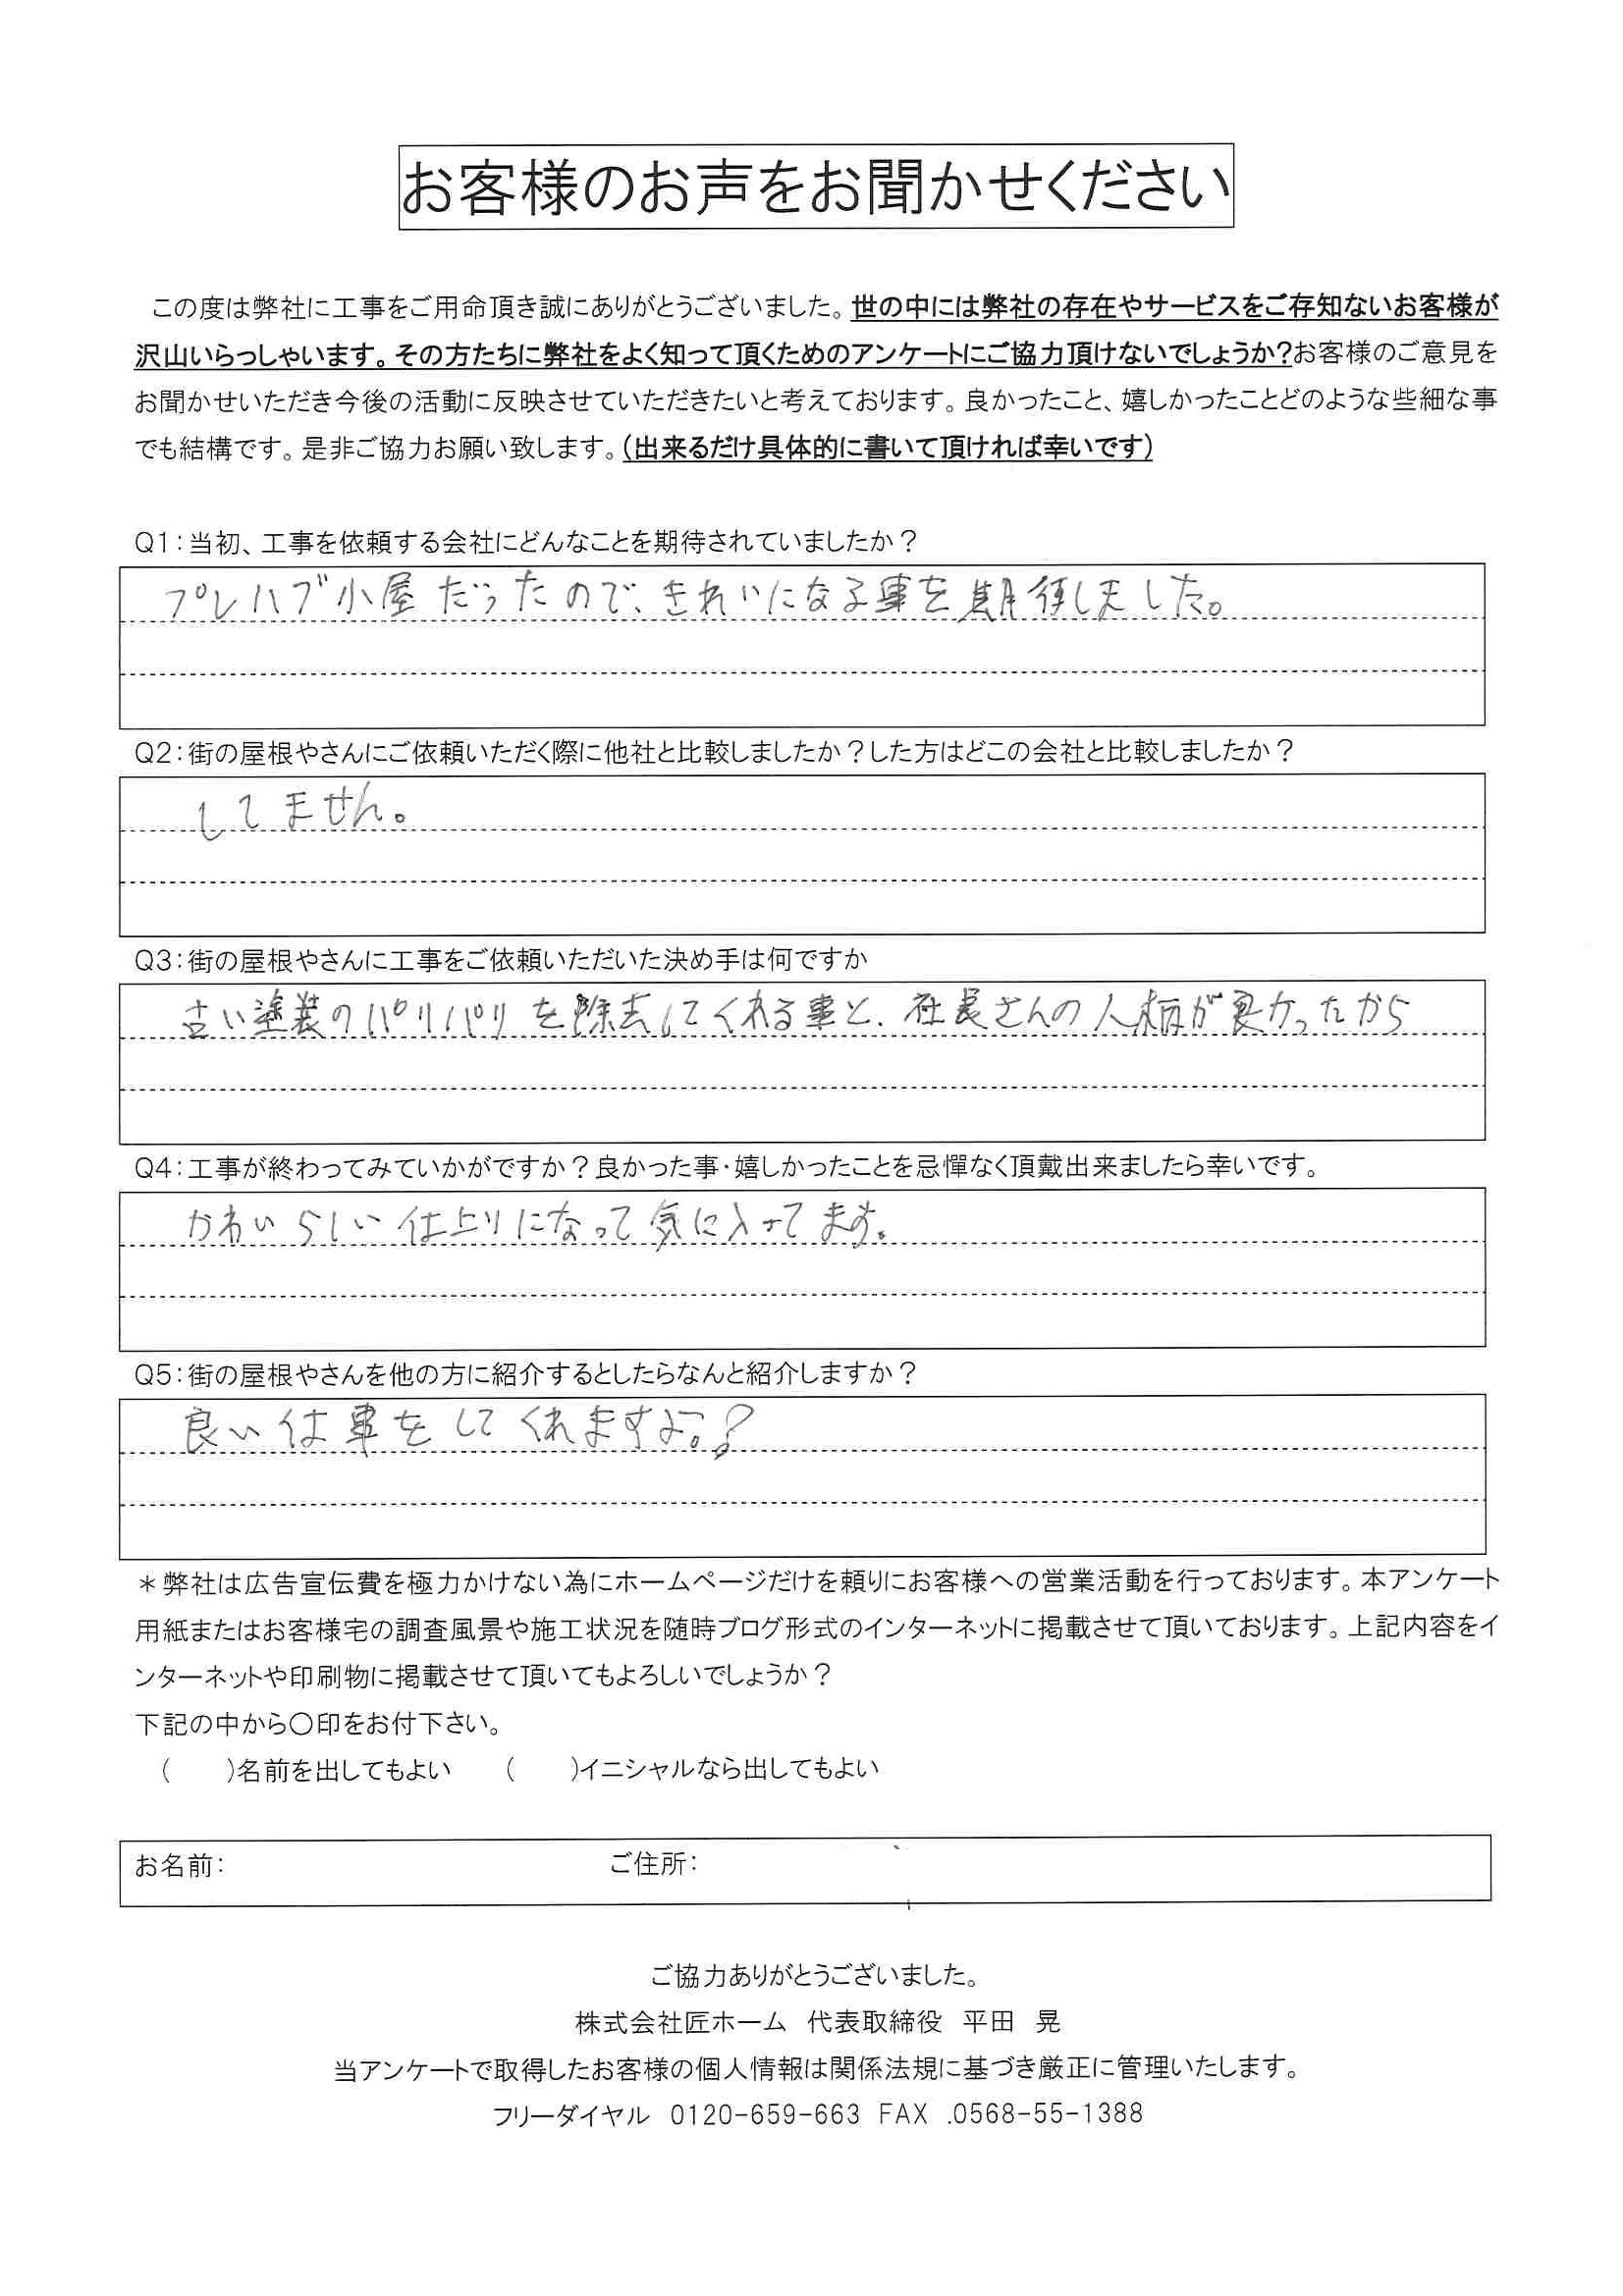 お客様のお声をお聞かせください
この度は弊社に工事をご用命頂き誠にありがとうございました。世の中には弊社の存在やサービスをご存知ないお客様が
沢山いらっしゃいます。その方たちに弊社をよく知って頂くためのアンケートにご協力頂けないでしょうか?お客様のご意見を
お聞かせいただき今後の活動に反映させていただきたいと考えております。良かったこと、嬉しかったことどのような些細な事
でも結構です。是非ご協力お願い致します。(出来るだけ具体的に書いて頂ければ幸いです)
Q1:当初、工事を依頼する会社にどんなことを期待されていましたか？
プレハブ小屋だったので、きれいになる事を期待しました。
Q2:街の屋根やさんにご依頼いただく際に他社と比較しましたか？した方はどこの会社と比較しましたか？
してません。
Q3:街の屋根やさんに工事をご依頼いただいた決め手は何ですか
古い塗装のパリパリを除去してくれる事と、社長さんの人柄が良かったから
Q4:工事が終わってみていかがですか？良かった事・嬉しかったことを忌憚なく頂戴出来ましたら幸いです。
かわいらしい仕上りになって気に入ってます。
Q5:街の屋根やさんを他の方に紹介するとしたらなんと紹介しますか？
良い仕事をしてくれますよ。？
＊弊社は広告宣伝費を極力かけない為にホームページだけを頼りにお客様への営業活動を行っております。本アンケート
用紙またはお客様宅の調査風景や施工状況を随時ブログ形式のインターネットに掲載させて頂いております。上記内容をイ
ンターネットや印刷物に掲載させて頂いてもよろしいでしょうか？
下記の中から〇印をお付下さい。
(　　)名前を出してもよい　(　　)イニシャルなら出してもよい
お名前:　ご住所:
ご協力ありがとうございました。
株式会社匠ホーム 代表取締役 平田 晃
当アンケートで取得したお客様の個人情報は関係法規に基づき厳正に管理いたします。
フリーダイヤル 0120-659-663 FAX .0568-55-1388